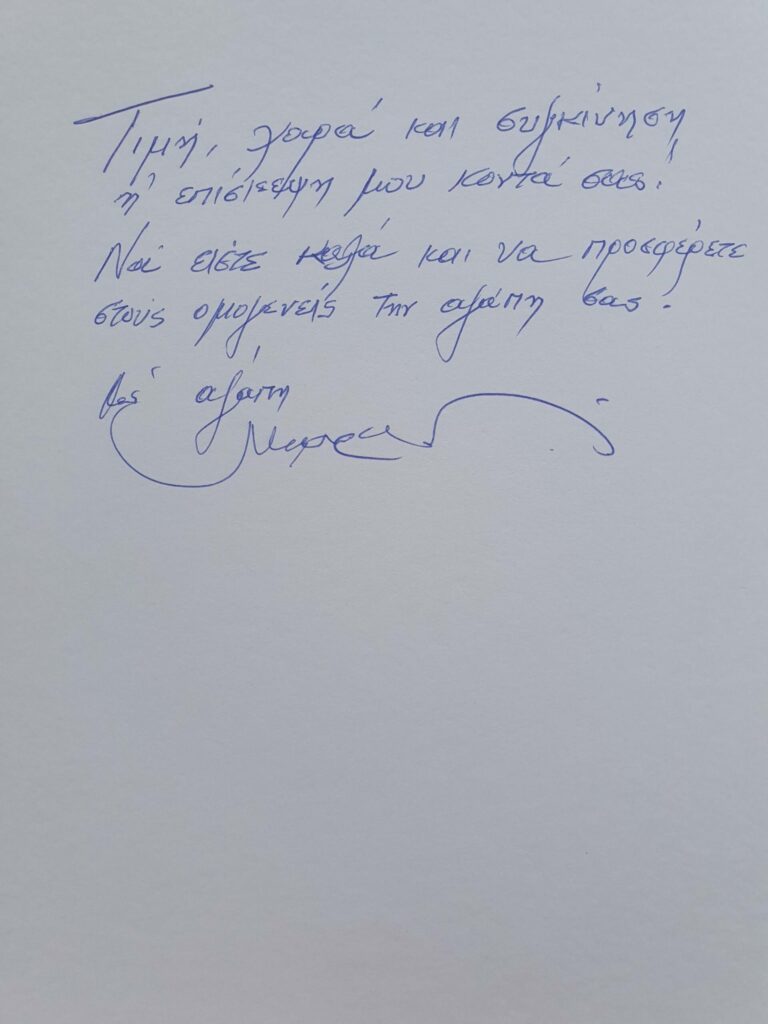 Τιμή, χαρά και συγκίνηση
η επίσκεψη μου κοντά σας!
Να είστε καλά και να προσφέρετε
στους ομογενείς την αγάπη σας.
Με αγάπη